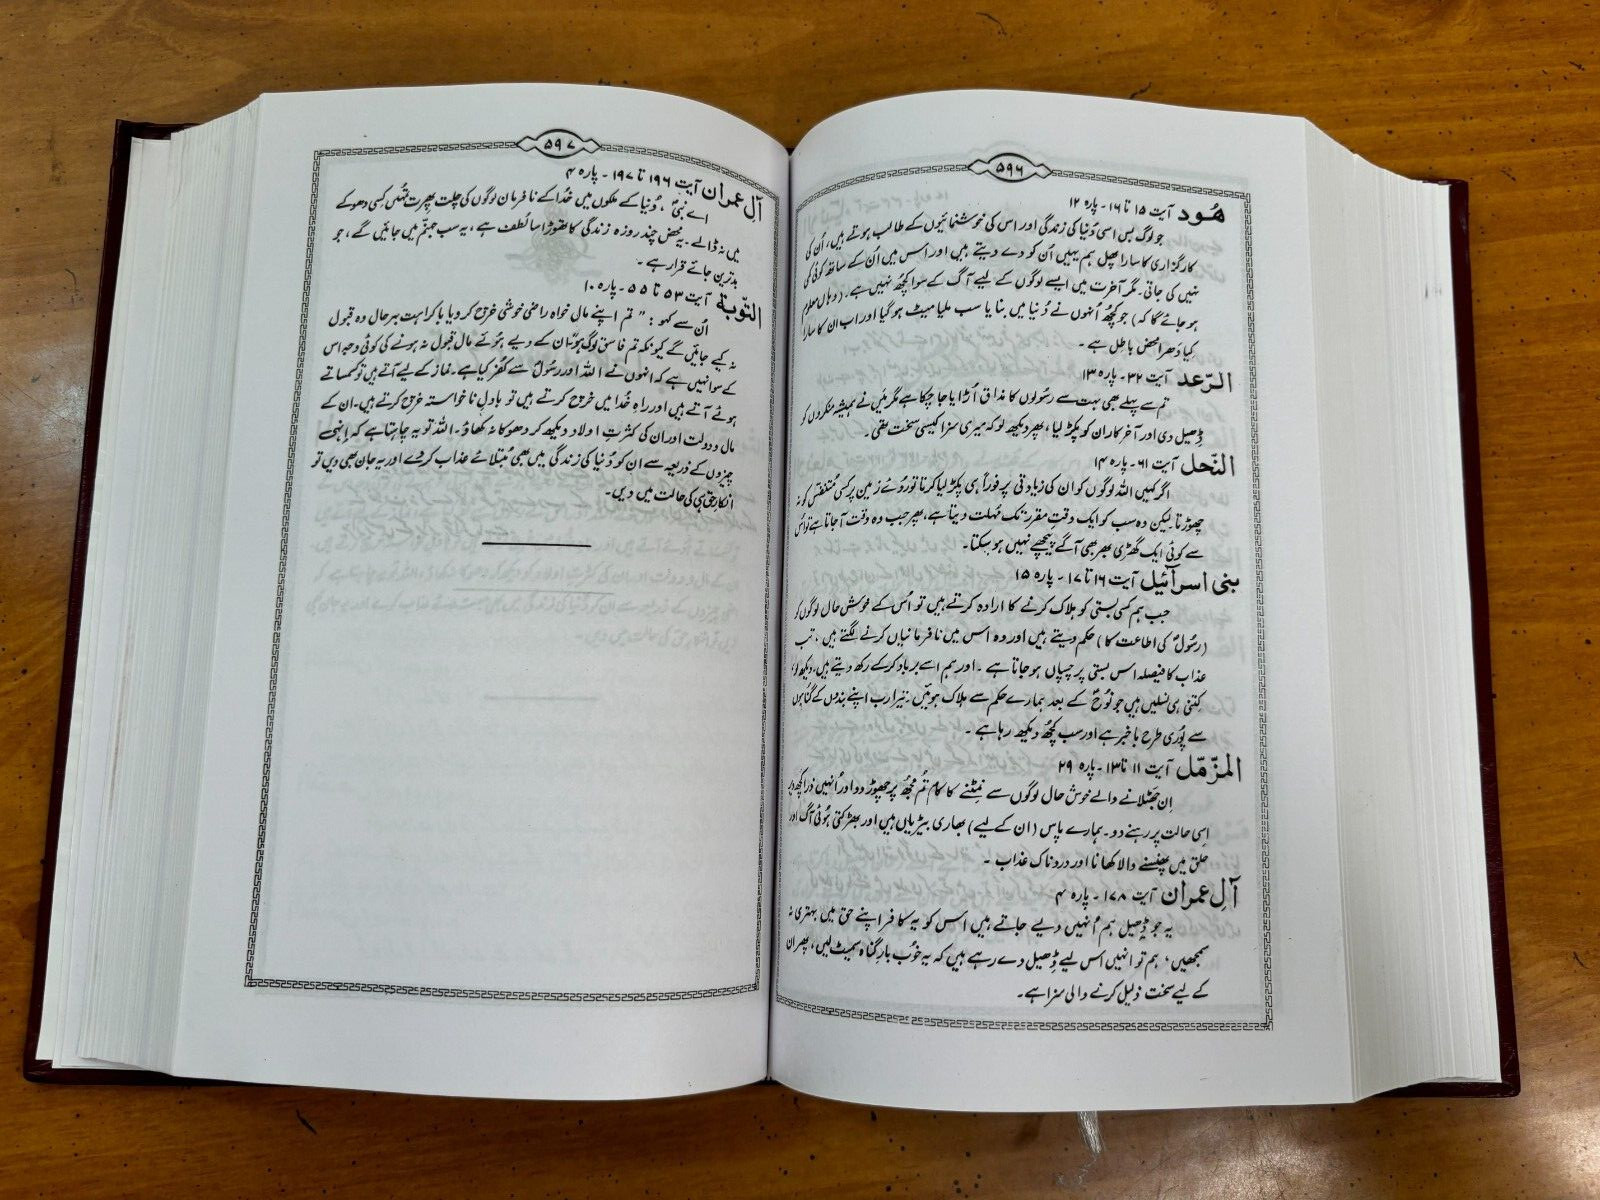 ۵۹۶
هُود آیت ۱۵ تا ۱۶۔ پارہ ۱۲
جو لوگ بس اسی دُنیا کی زندگی اور اس کی خوشنمائیوں کے طالب ہوتے ہیں، اُن کی
کارگزاری کا سارا پھل ہم یہیں اُن کو دے دیتے ہیں اور اس میں اُن کے ساتھ کوئی کمی
نہیں کی جاتی۔ مگر آخرت میں ایسے لوگوں کے لیے آگ کے سوا کچھ نہیں ہے۔ (وہاں معلوم
ہو جائے گا کہ) جو کچھ اُنہوں نے دُنیا میں بنایا سب ملیا میٹ ہو گیا اور اب ان کا سارا
کیا دَھرا محض باطل ہے۔
الرّعد آیت ۳۲۔ پارہ ۱۳
تم سے پہلے بھی بہت سے رسُولوں کا مذاق اُڑایا جا چکا ہے مگر میں نے ہمیشہ منکروں کو
ڈھیل دی اور آخر کار ان کو پکڑ لیا، پھر دیکھ لو کہ میری سزا کیسی سخت تھی۔
النّحل آیت ۶۱۔ پارہ ۱۴
اگر کہیں اللہ لوگوں کو ان کی زیادتی پر فوراً ہی پکڑ لیا کرتا تو رُوئے زمین پر کسی متنفّس کو نہ
چھوڑتا۔ لیکن وہ سب کو ایک وقتِ مقرر تک مُہلت دیتا ہے، پھر جب وہ وقت آ جاتا ہے تو اُس
سے کوئی ایک گھڑی بھر بھی آگے پیچھے نہیں ہو سکتا۔
بنی اسرآئیل آیت ۱۶ تا ۱۷۔ پارہ ۱۵
جب ہم کسی بستی کو ہلاک کرنے کا ارادہ کرتے ہیں تو اُس کے خوش حال لوگوں کو
(رسُولؐ کی اطاعت کا) حکم دیتے ہیں اور وہ اس میں نافرمانیاں کرنے لگتے ہیں، تب
عذاب کا فیصلہ اس بستی پر چسپاں ہو جاتا ہے۔ اور ہم اسے برباد کر کے رکھ دیتے ہیں، دیکھ لو
کتنی ہی نسلیں ہیں جو نُوحؑ کے بعد ہمارے حکم سے ہلاک ہوئیں۔ تیرا رب اپنے بندوں کے گناہوں
سے پُوری طرح باخبر ہے اور سب کچھ دیکھ رہا ہے۔
المزّمّل آیت ۱۱ تا ۱۳۔ پارہ ۲۹
اِن جھٹلانے والے خوش حال لوگوں سے نمٹنے کا کام تُم مُجھ پر چھوڑ دو اور اُنہیں ذرا کچھ دیر
اِسی حالت پر رہنے دو۔ ہمارے پاس (ان کے لیے) بھاری بیڑیاں ہیں اور بھڑکتی ہُوئی آگ اور
حلق میں پھنسنے والا کھانا اور دردناک عذاب۔
آلِ عمران آیت ۱۷۸۔ پارہ ۴
یہ جو ڈھیل ہم اُنہیں دیے جاتے ہیں اس کو یہ کافر اپنے حق میں بہتری نہ
سمجھیں، ہم تو انہیں اس لیے ڈھیل دے رہے ہیں کہ یہ خُوب بارِ گناہ سمیٹ لیں، پھر ان
کے لیے سخت ذلیل کرنے والی سزا ہے۔
۵۹۷
آلِ عمران آیت ۱۹۶ تا ۱۹۷۔ پارہ ۴
اے نبیؐ، دُنیا کے ملکوں میں خُدا کے نافرمان لوگوں کی چلت پھرت تمُہیں کسی دھوکے
میں نہ ڈالے۔ یہ محض چند روزہ زندگی کا تھوڑا سا لطف ہے، یہ سب جہنم میں جائیں گے، جو
بدترین جائے قرار ہے۔
التّوبة آیت ۵۳ تا ۵۵۔ پارہ ۱۰
اُن سے کہو: " تم اپنے مال خواہ راضی خوشی خرچ کرو یا باکراہت بہرحال وہ قبول
نہ کیے جائیں گے کیونکہ تم فاسق لوگ ہو" ان کے دیے ہُوئے مال قبول نہ ہونے کی کوئی وجہ اس
کے سوا نہیں ہے کہ انہوں نے اللہ اور رسُولؐ سے کُفر کیا ہے۔ نماز کے لیے آتے ہیں تو کسمساتے
ہوئے آتے ہیں اور راہِ خُدا میں خرچ کرتے ہیں تو بادلِ ناخواستہ خرچ کرتے ہیں۔ ان کے
مال و دولت اور ان کی کثرتِ اولاد دیکھ کر دھوکا نہ کھاؤ۔ اللہ تو یہ چاہتا ہے کہ اِنہی
چیزوں کے ذریعہ سے ان کو دُنیا کی زندگی میں بھی مُبتلائے عذاب کر دے اور یہ جان بھی دیں تو
انکارِ حق ہی کی حالت میں دیں۔